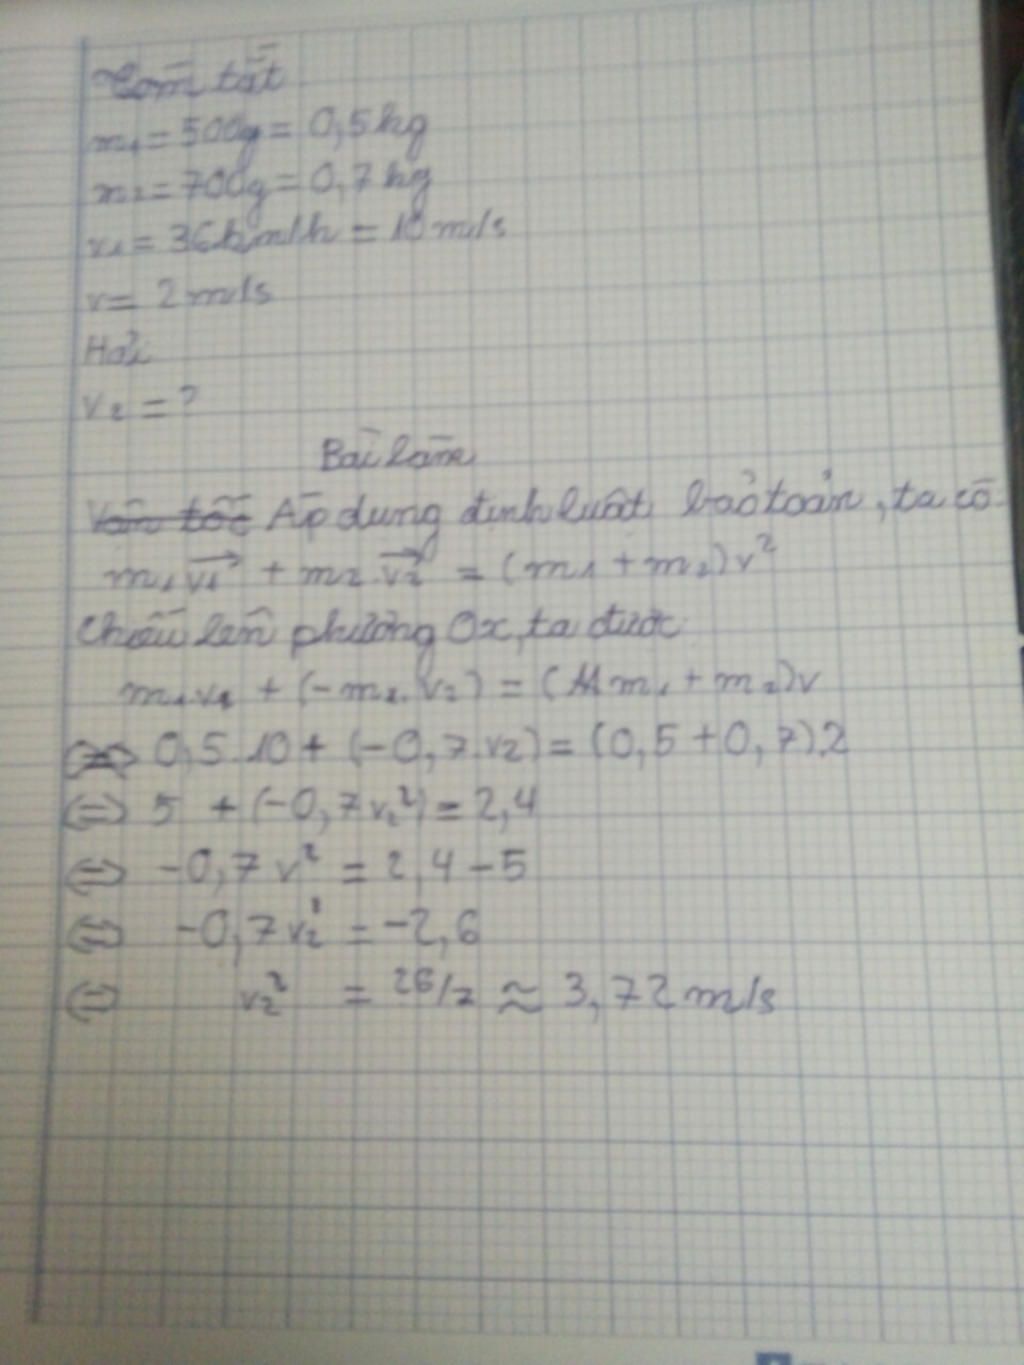 Tóm tắt
m1 = 500g = 0,5kg
m2 = 700g = 0,7kg
v1 = 36km/h = 10m/s
v = 2m/s
Hỏi
v2 = ?
Bài làm
Vận tốc Áp dụng định luật bảo toàn, ta có
m1.v1→ + m2.v2→ = (m1 + m2)v²
Chiếu lên phương Ox, ta được
m1v1 + (-m2.v2) = (m1 + m2)v
<=> 0,5.10 + (-0,7.v2) = (0,5 + 0,7).2
<=> 5 + (-0,7v2²) = 2,4
<=> -0,7v² = 2,4 - 5
<=> -0,7v2² = -2,6
<=> v2² = 26/7 ≈ 3,72m/s